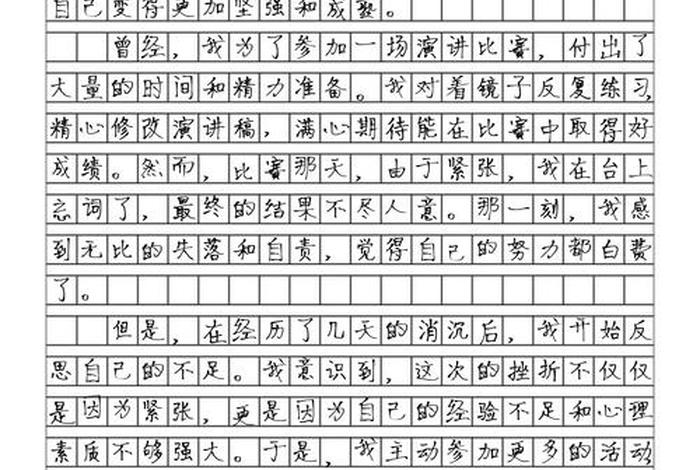 自己变得更加坚强和成熟。
曾经，我为了参加一场演讲比赛，付出了
大量的时间和精力准备。我对着镜子反复练习，
精心修改演讲稿，满心期待能在比赛中取得好
成绩。然而，比赛那天，由于紧张，我在台上
忘词了，最终的结果不尽人意。那一刻，我感
到无比的失落和自责，觉得自己的努力都白费
了。
但是，在经历了几天的消沉后，我开始反
思自己的不足。我意识到，这次的挫折不仅仅
是因为紧张，更是因为自己的经验不足和心理
素质不够强大。于是，我主动参加更多的活动